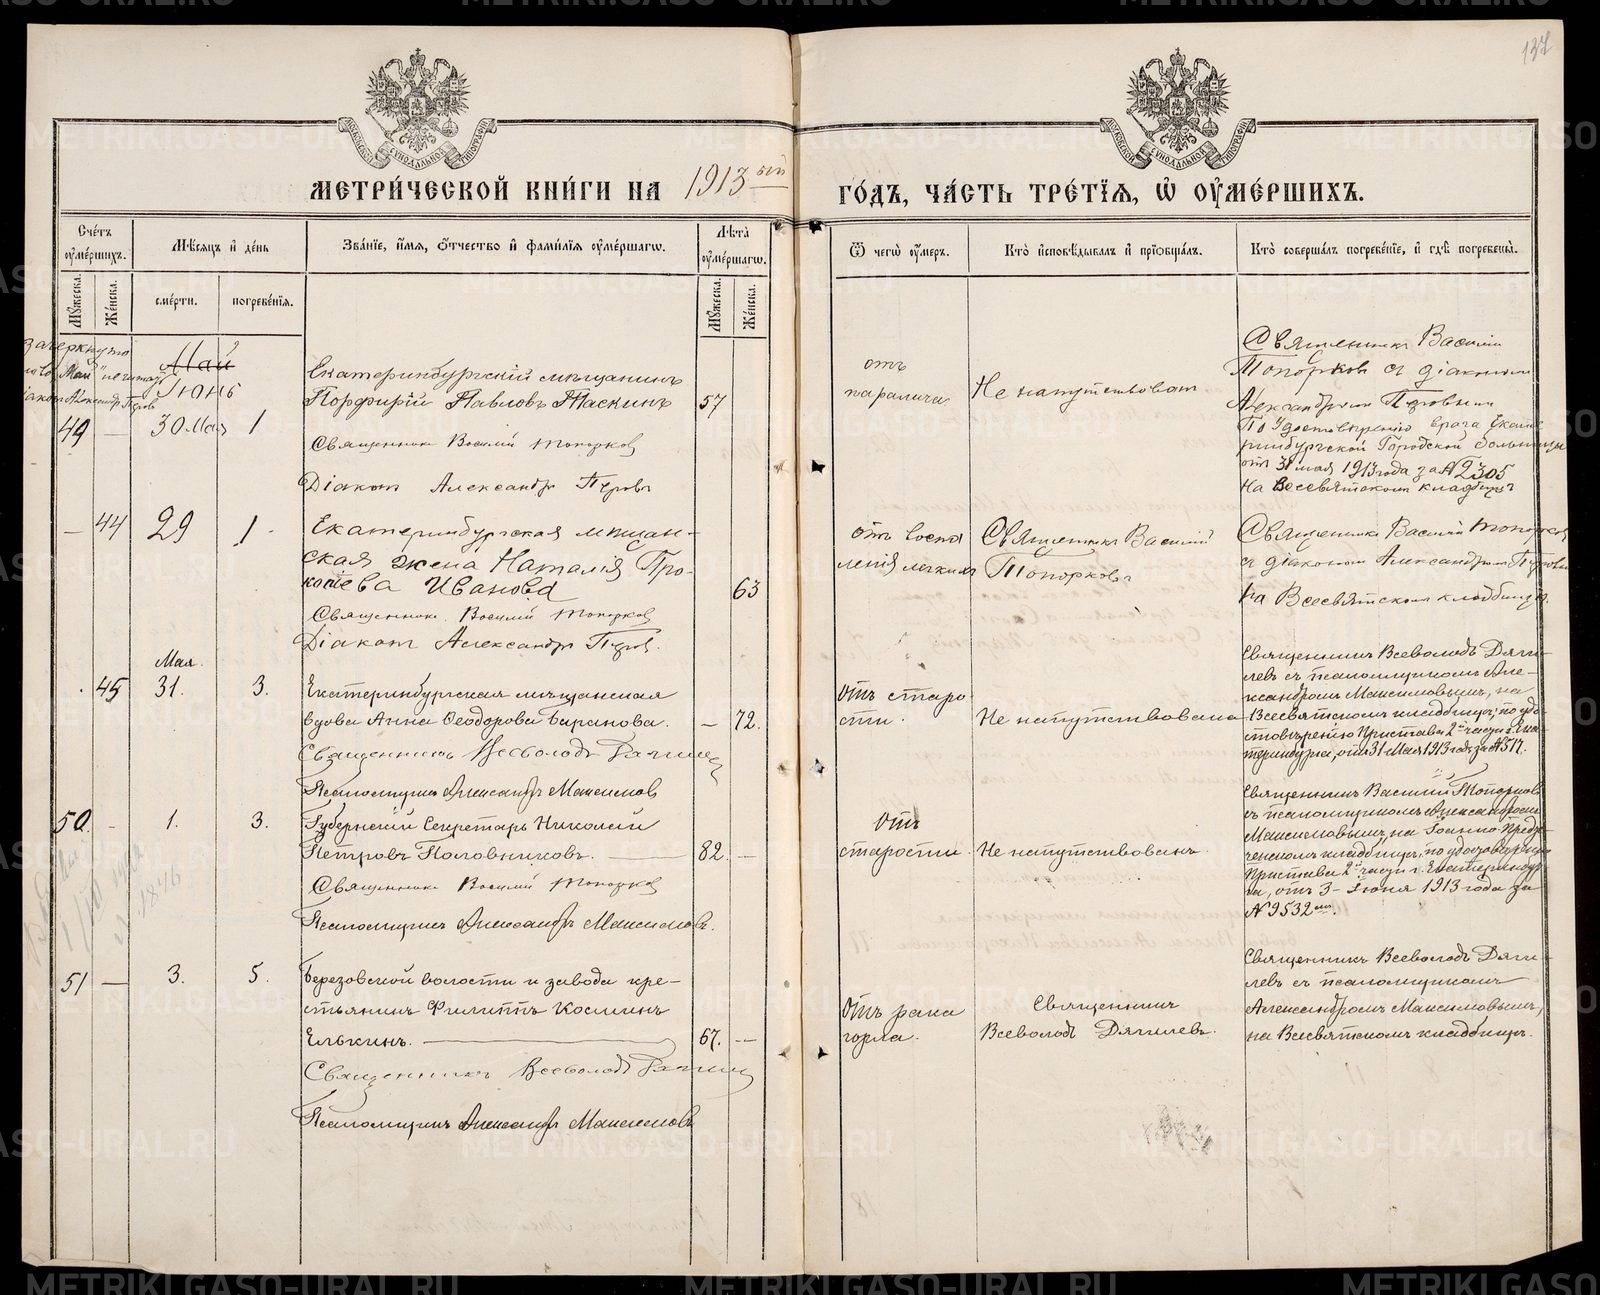 137
МЕТРИ́ЧЕСКОЙ КНИ́ГИ НА 1913 ый
ГО́ДЪ, ЧА́СТЬ ТРЕ́ТЇЯ, Ѡ ОУМЕ́РШИХЪ.
Сче́тъ оуме́ршихъ.
Мѣ́сяцъ и де́нь
Зва́нїе, и́мя, о́тчество и фами́лїя оуме́ршагѡ.
Лѣ́та оуме́ршагѡ.
Ѿ чегѡ̀ оу́меръ.
Кто̀ исповѣ́дывалъ и прїобща́лъ.
Кто̀ соверша́лъ погребе́нїе, и гдѣ̀ погребены̀.
Му́жеска.
Же́нска.
сме́рти.
погребе́нїя.
Му́жеска.
Же́нска.
зачеркнуто
"Май" не читать
Діаконъ Александръ Пуровъ
Май
Іюнь
49 — 30 Мая 1
Екатеринбургскій мѣщанинъ
Порфирій Павловъ Таскинъ 57
Священникъ Василій Топорков
Діаконъ Александръ Пуровъ
отъ
паралича
Не напутствованъ
Священникъ Василій
Топорков съ діакономъ
Александромъ Пуровымъ
По удостовѣренію врача Екате-
ринбургской Городской больницы
отъ 31 мая 1913 года за № 2305
На Всесвятскомъ кладбищѣ
— 44 29 1
Екатеринбургская мѣщан-
ская жена Наталія Про-
копіева Иванова 63
Священник Василій Топорков
Діаконъ Александръ Пуров.
отъ воспа
ленія легкихъ
Священникъ Василій
Топорковъ
Священникъ Василій Топорков
съ діакономъ Александромъ Пуровымъ
на Всесвятскомъ кладбищѣ.
Мая
45 31. 3.
Екатеринбургская мѣщанская
вдова Анна Ѳеодорова Баранова. — 72.
Священникъ Всеволодъ Дягилев
Псаломщикъ Александръ Максимов
Отъ старо
сти.
Не напутствована
Священникъ Всеволодъ Дяги-
левъ съ псаломщикомъ Але-
ксандромъ Максимовымъ, на
Всесвятскомъ кладбищѣ; по удо-
стовѣренію Пристава 2й части г. Ека-
теринбурга, отъ 31 Мая 1913 года за № 517.
50. - 1. 3.
Губернскій Секретарь Николай
Петровъ Половниковъ. — 82. —
Священник Василій Топорков
Псаломщикъ Александръ Максимовъ.
Отъ
старости.
Не напутствованъ.
Священникъ Василій Топорков
съ псаломщикомъ Александромъ
Максимовымъ, на Іоанно-Предте-
ченскомъ кладбищѣ, по удостовѣренію
Пристава 2й части г. Екатеринбур
га, отъ 3 Іюня 1913 года за
№ 9532 мъ.
1846
51 — 3. 5.
Березовской волости и завода кре-
стьянинъ Филиппъ Косминъ
Елькинъ. — 67. —
Священникъ Всеволодъ Дягилев
Псаломщикъ Александръ Максимовъ
Отъ рака
горла.
Священникъ
Всеволодъ Дягилевъ.
Священникъ Всеволодъ Дяги-
левъ съ псаломщикомъ
Александромъ Максимовымъ,
на Всесвятскомъ кладбищѣ.
METRIKI.GASO-URAL.RU